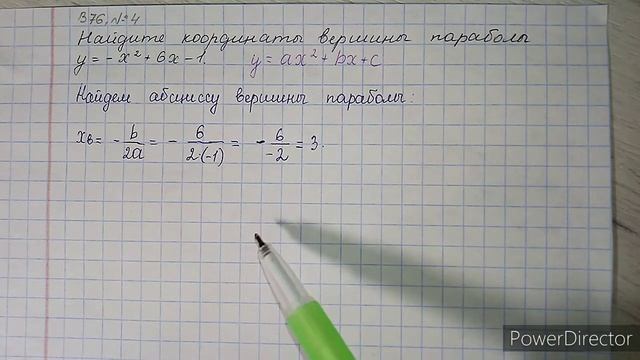 В76, №4
Найдите координаты вершины параболы
y = - x² + 6x - 1. y = ax² + bx + c
Найдем абсциссу вершины параболы:
xв = - b/2a = - 6/2·(-1) = - 6/-2 = 3.
PowerDirector